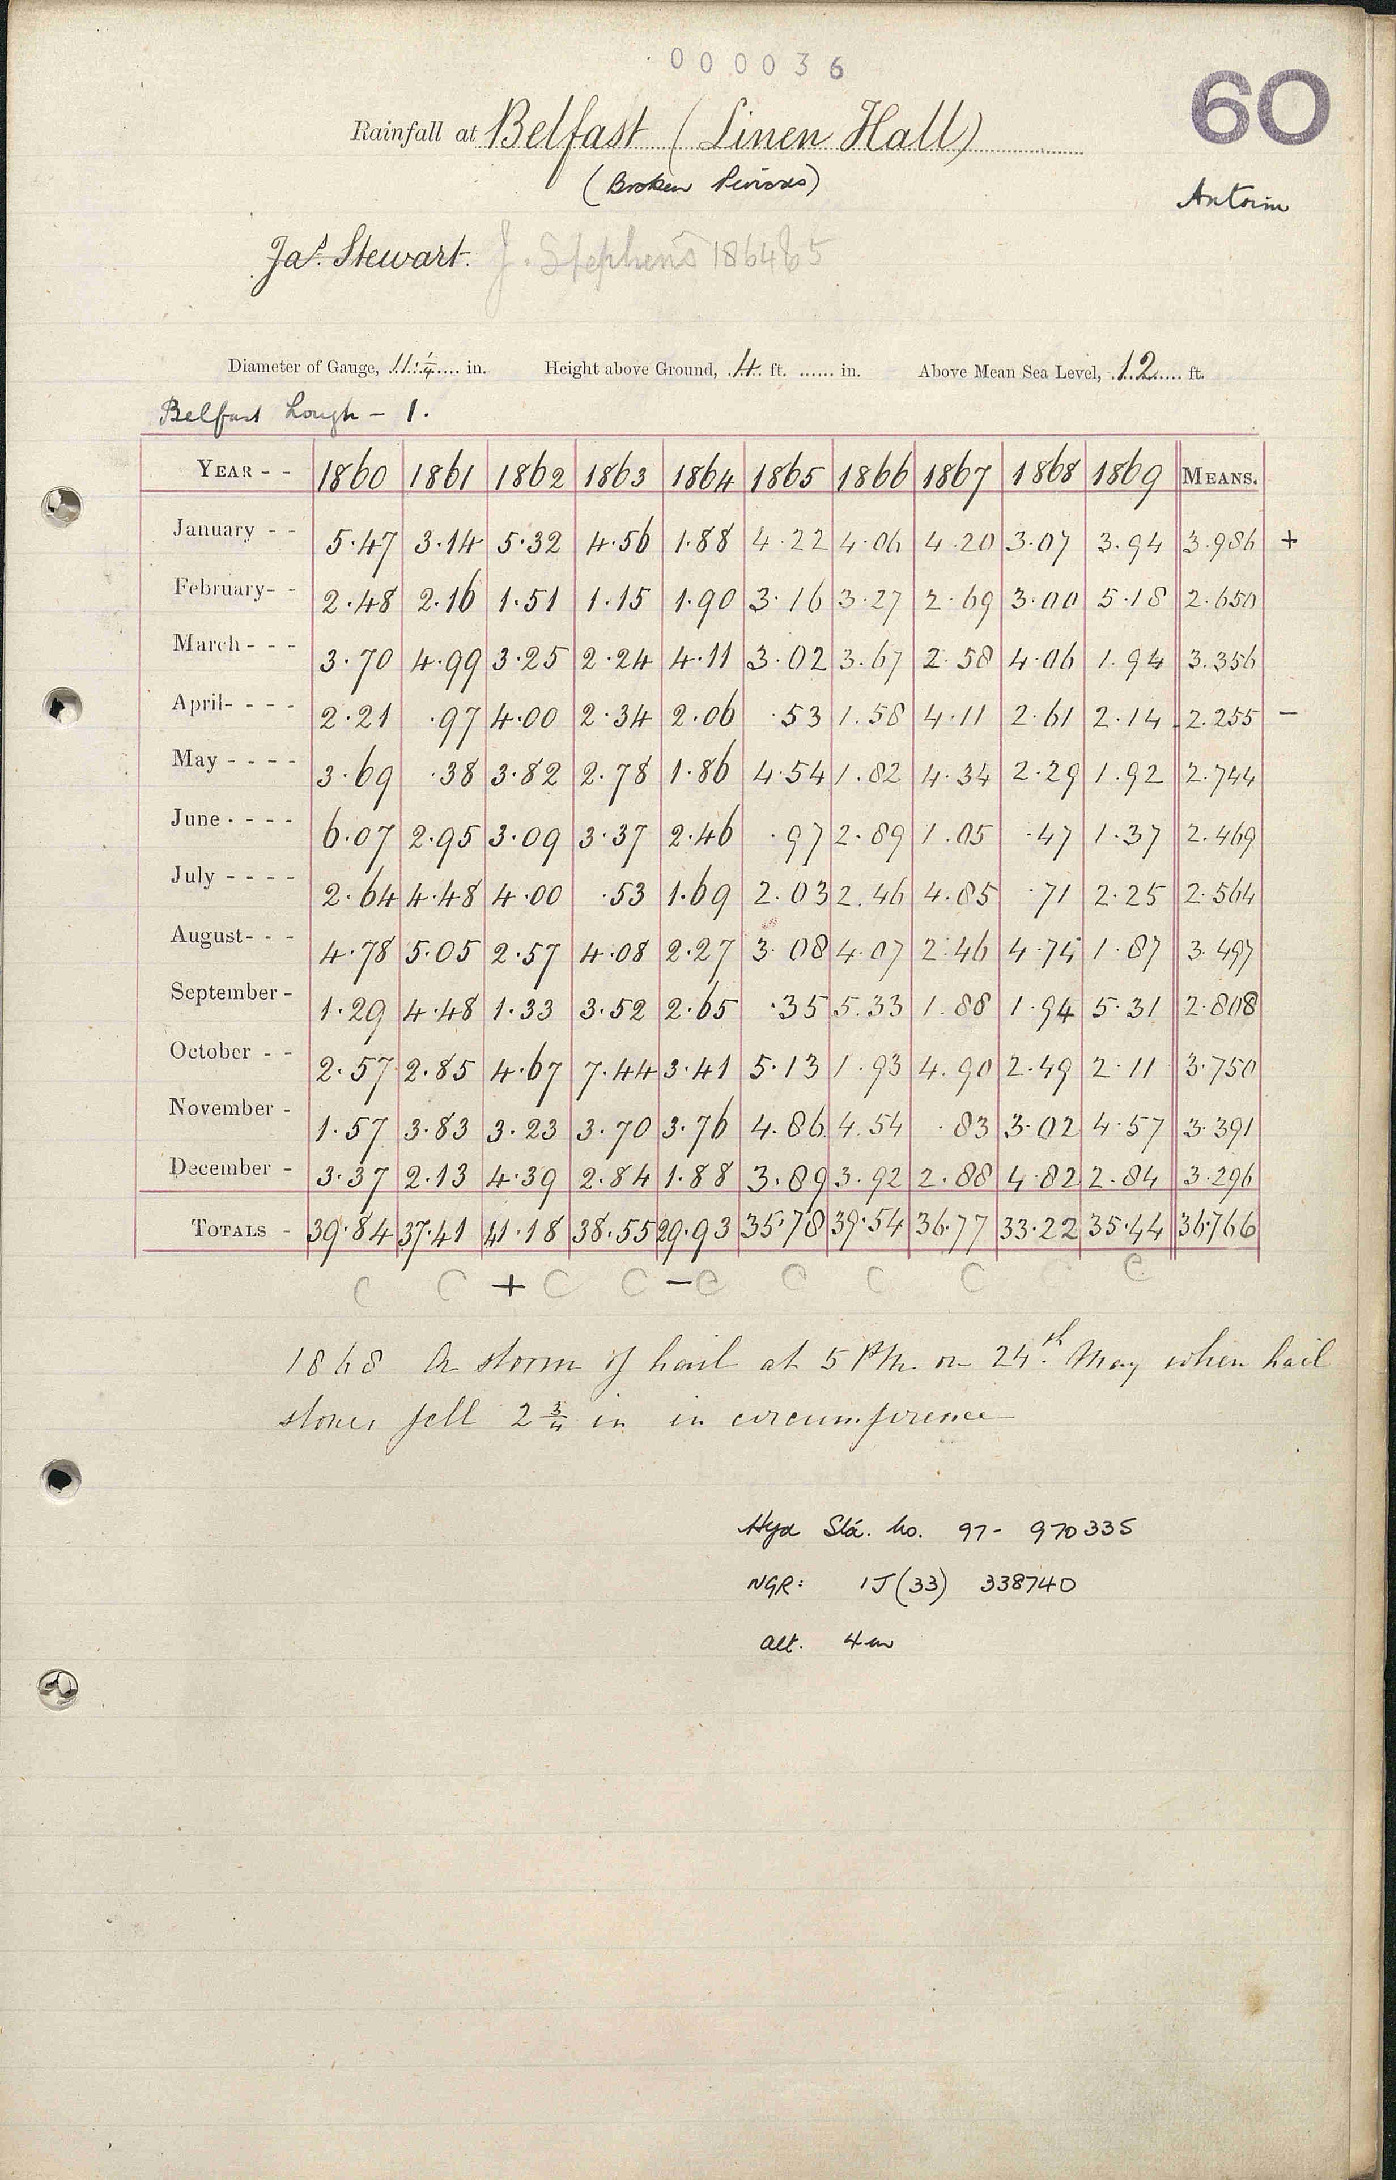 000036
60
Rainfall at Belfast (Linen Hall)
(Broken Periods)
Antrim
Jas. Stewart. J. Stephens 1864&5
Diameter of Gauge, 11 1/4 in. Height above Ground, 4 ft. ...... in. Above Mean Sea Level, 12 ft.
Belfast Lough - 1.
YEAR - - 1860 1861 1862 1863 1864 1865 1866 1867 1868 1869 MEANS.
January - - 5.47 3.14 5.32 4.56 1.88 4.22 4.06 4.20 3.07 3.94 3.986 +
February- - 2.48 2.16 1.51 1.15 1.90 3.16 3.27 2.69 3.00 5.18 2.650
March - - - 3.70 4.99 3.25 2.24 4.11 3.02 3.67 2.58 4.06 1.94 3.356
April- - - - 2.21 .97 4.00 2.34 2.06 .53 1.58 4.11 2.61 2.14 2.255 -
May - - - - 3.69 .38 3.82 2.78 1.86 4.54 1.82 4.34 2.29 1.92 2.744
June - - - - 6.07 2.95 3.09 3.37 2.46 .97 2.89 1.05 .47 1.37 2.469
July - - - - 2.64 4.48 4.00 .53 1.69 2.03 2.46 4.85 .71 2.25 2.564
August- - - 4.78 5.05 2.57 4.08 2.27 3.08 4.07 2.46 4.74 1.87 3.497
September - 1.29 4.48 1.33 3.52 2.65 .35 5.33 1.88 1.94 5.31 2.808
October - - 2.57 2.85 4.67 7.44 3.41 5.13 1.93 4.90 2.49 2.11 3.750
November - 1.57 3.83 3.23 3.70 3.76 4.86 4.54 .83 3.02 4.57 3.391
December - 3.37 2.13 4.39 2.84 1.88 3.89 3.92 2.88 4.82 2.84 3.296
TOTALS - 39.84 37.41 41.18 38.55 29.93 35.78 39.54 36.77 33.22 35.44 36.766
C C + C C - C C C C C C
1868 A storm of hail at 5 PM on 24th. May when hail
stones fell 2 3/4 in in circumference
Hyd Sta. No. 97- 970335
NGR: IJ(33) 338740
alt. 4m